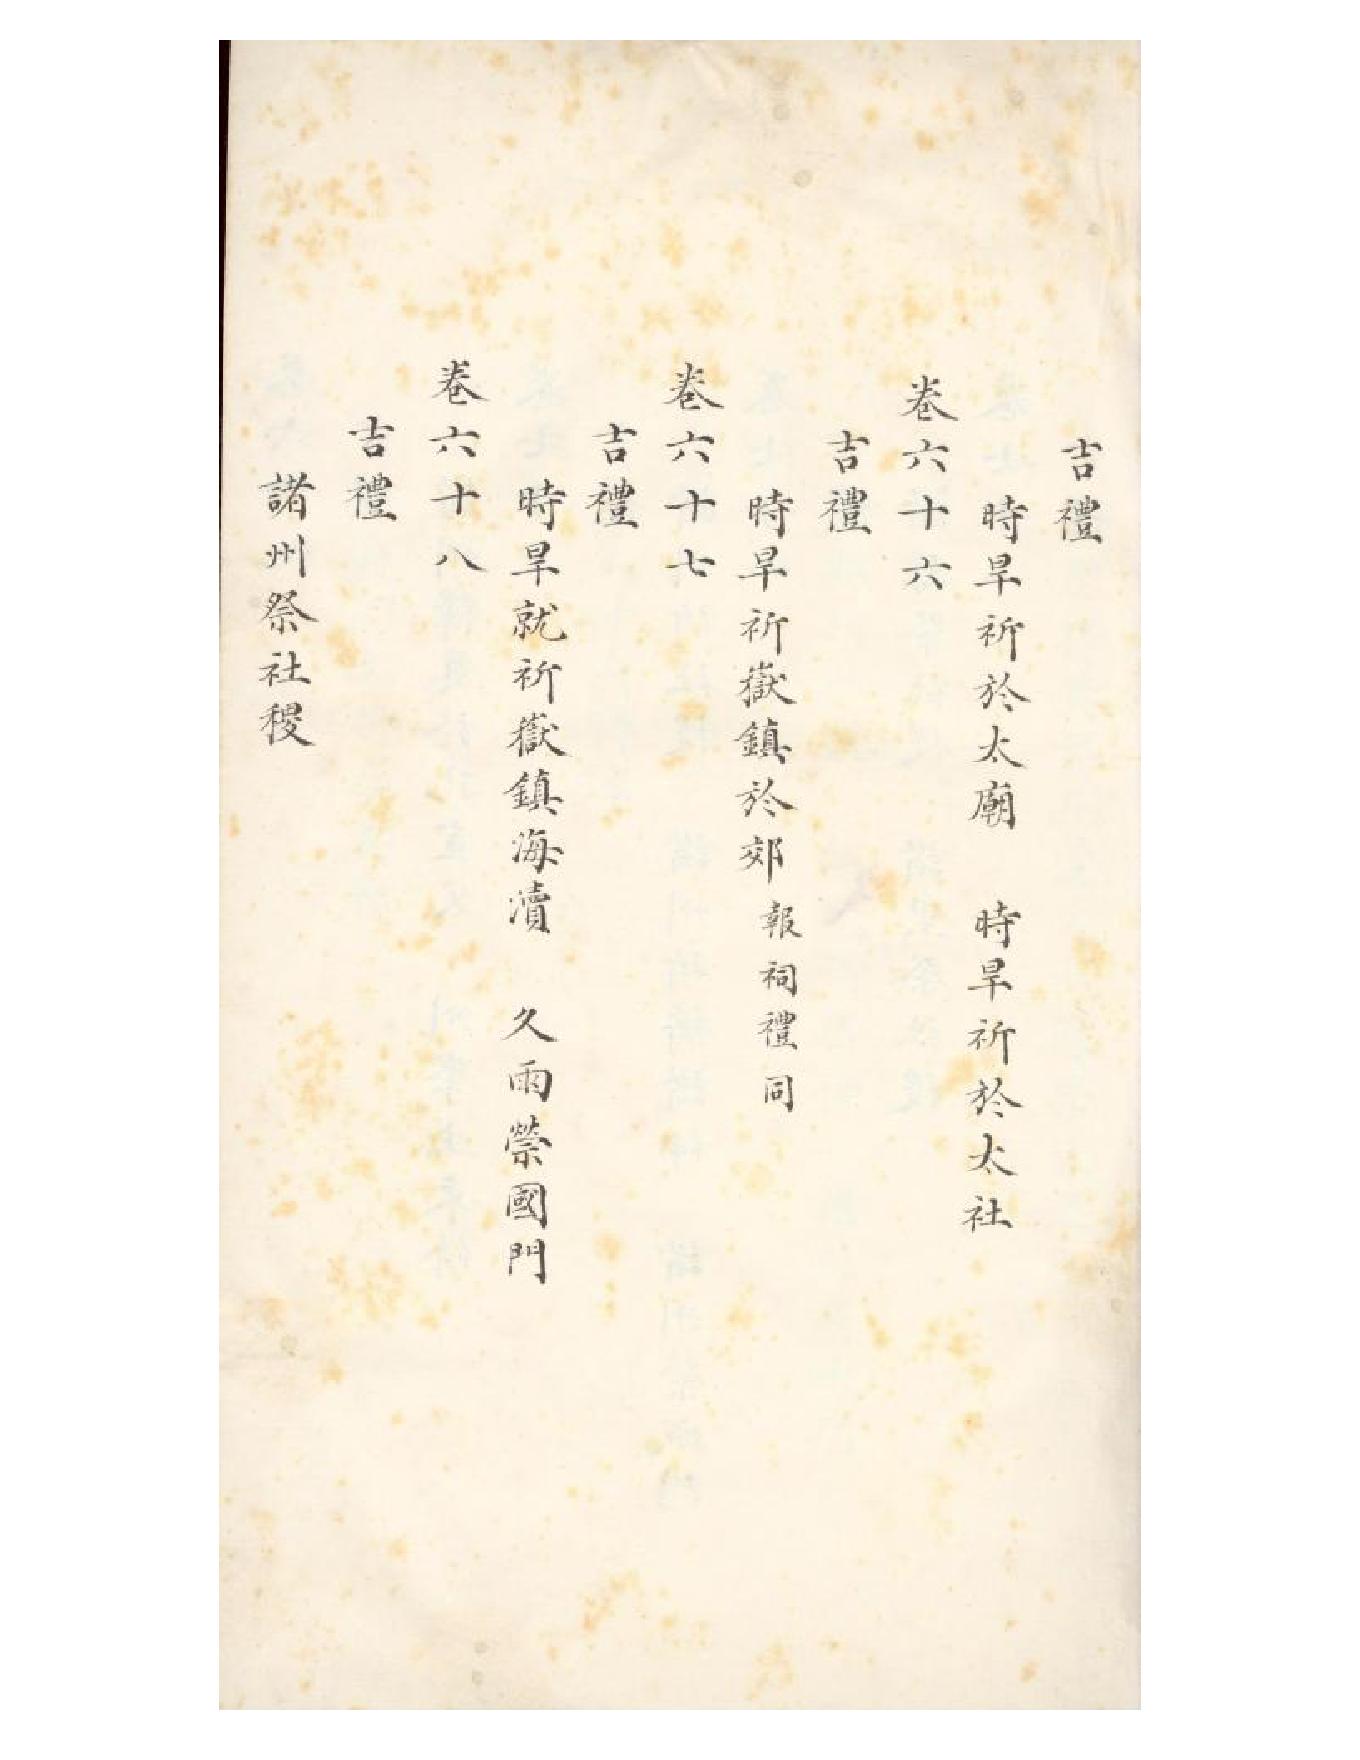 吉禮
時旱祈於太廟　時旱祈於太社
卷六十六
吉禮
時旱祈嶽鎮於郊報祠禮同
卷六十七
吉禮
時旱就祈嶽鎮海瀆　久雨禜國門
卷六十八
吉禮
諸州祭社稷